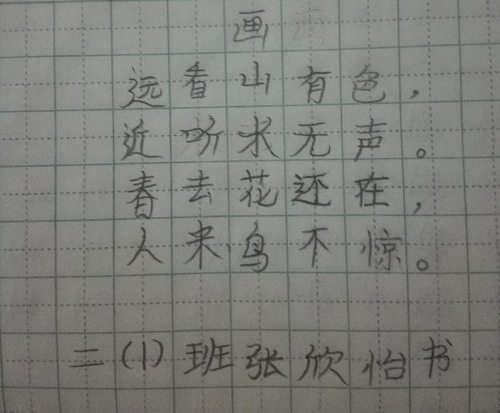 画
远看山有色，
近听水无声。
春去花还在，
人来鸟不惊。
二(1)班张欣怡书